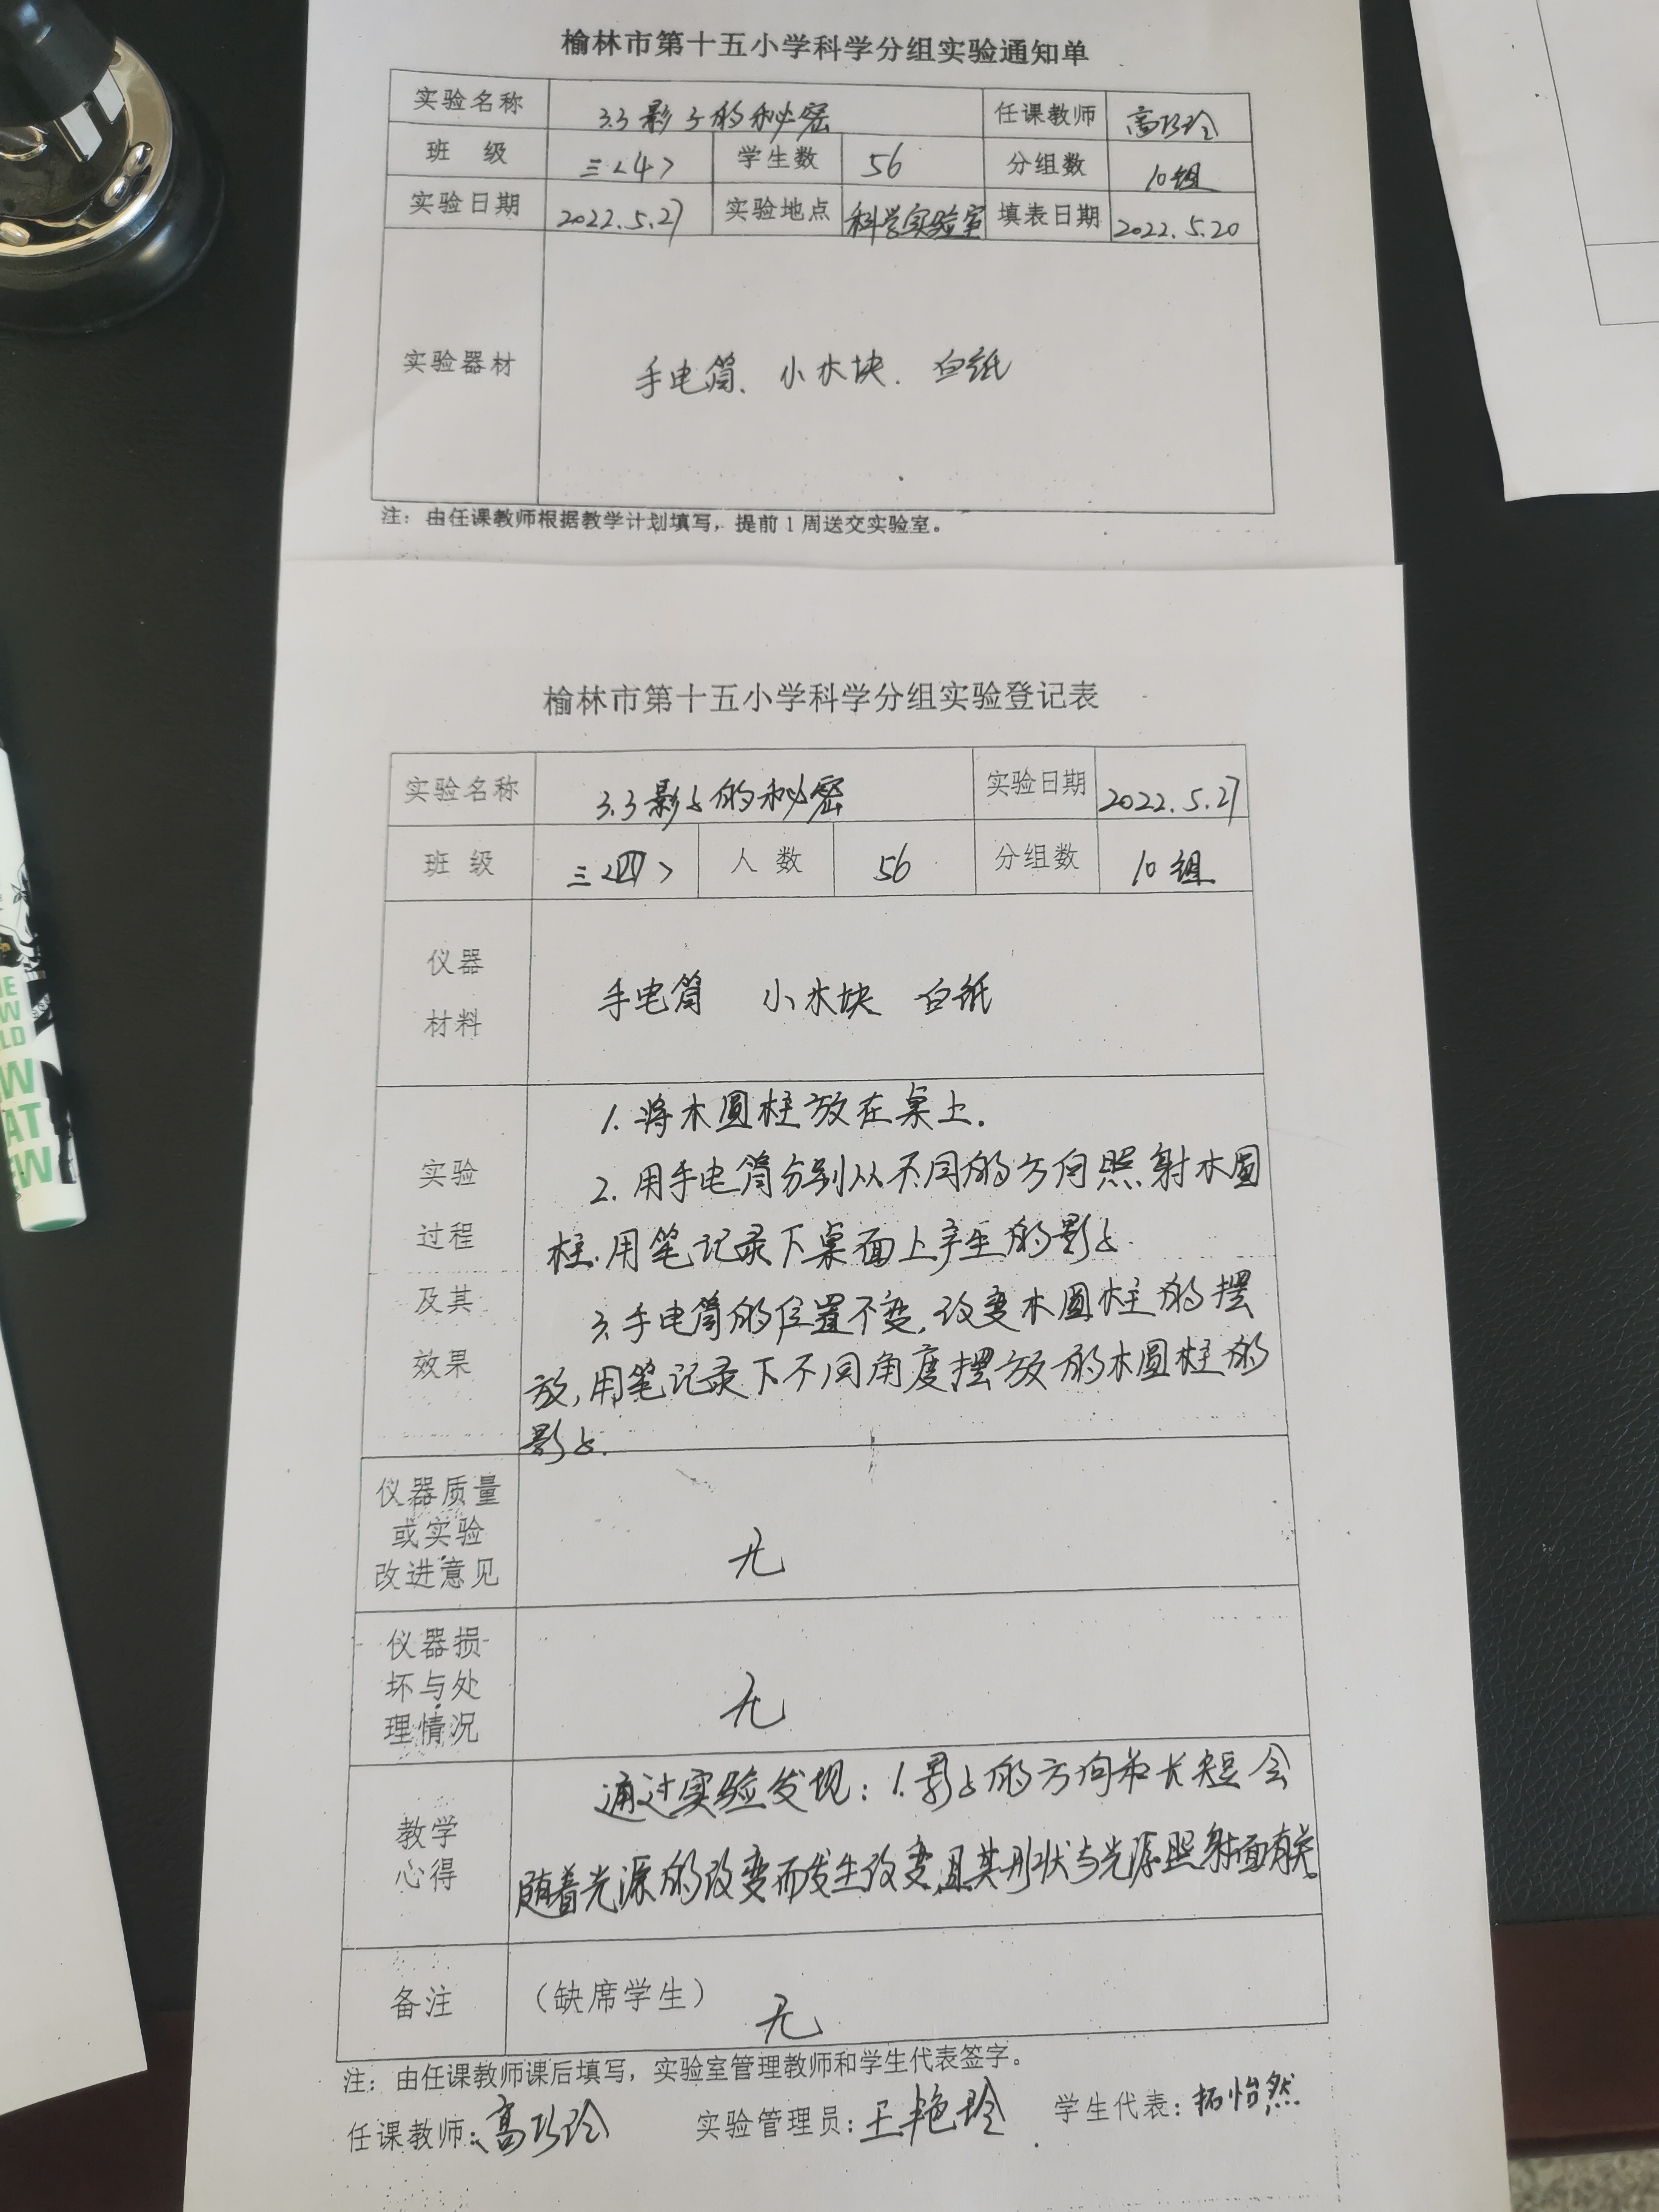 榆林市第十五小学科学分组实验通知单
实验名称 3.3影子的秘密 任课教师 高巧玲
班 级 三<4> 学生数 56 分组数 10组
实验日期 2022.5.27 实验地点 科学实验室 填表日期 2022.5.20
实验器材 手电筒、小木块、白纸
注：由任课教师根据教学计划填写，提前1周送交实验室。
榆林市第十五小学科学分组实验登记表
实验名称 3.3影子的秘密 实验日期 2022.5.27
班 级 三<四> 人 数 56 分组数 10组
仪器
材料
手电筒 小木块 白纸
实验
过程
及其
效果
1.将木圆柱放在桌上.
2.用手电筒分别从不同的方向照射木圆
柱.用笔记录下桌面上产生的影子.
3.手电筒的位置不变,改变木圆柱的摆
放,用笔记录下不同角度摆放的木圆柱的
影子.
仪器质量
或实验
改进意见
无
仪器损
坏与处
理情况
无
教学
心得
通过实验发现：1.影子的方向和长短会
随着光源的改变而发生改变,且其形状与光源照射面有关。
备注 （缺席学生） 无
注：由任课教师课后填写，实验室管理教师和学生代表签字。
任课教师：高巧玲 实验管理员：王艳玲 学生代表：拓怡然
IE
W
LD
W
AT
EW